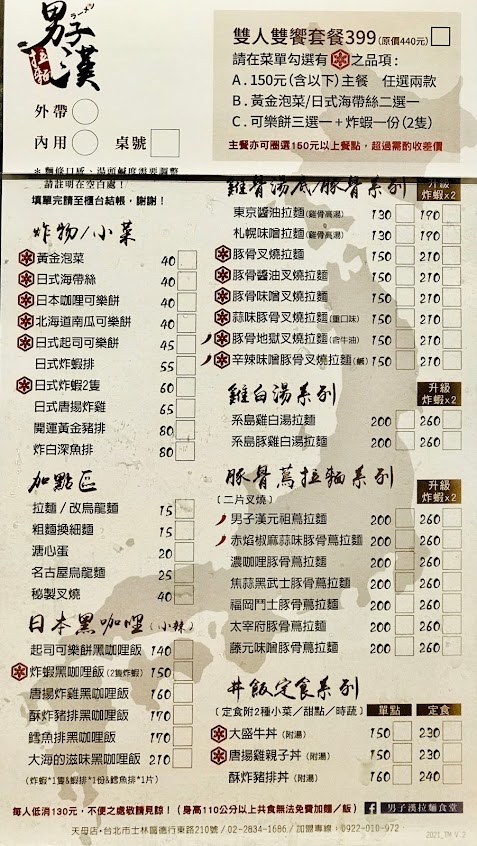 ラーメン
男子漢
拉麵
外帶
內用
桌號
雙人雙饗套餐399(原價440元)
請在菜單勾選有之品項:
A.150元(含以下)主餐 任選兩款
B.黃金泡菜/日式海帶絲二選一
C.可樂餅三選一+炸蝦一份(2隻)
主餐亦可圈選150元以上餐點,超過需酌收差價
*麵條口感、湯頭鹹度需要調整
請註明在空白處!
填單完請至櫃台結帳,謝謝!
炸物/小菜
黃金泡菜 40
日式海帶絲 40
日本咖哩可樂餅 40
北海道南瓜可樂餅 40
日式起司可樂餅 45
日式炸蝦排 55
日式炸蝦2隻 60
日式唐揚炸雞 65
開運黃金豬排 80
炸白深魚排 80
加點區
拉麵/改烏龍麵 15
粗麵換細麵 15
溏心蛋 20
名古屋烏龍麵 25
秘製叉燒 40
日本黑咖哩(小辣)
起司可樂餅黑咖哩飯 140
炸蝦黑咖哩飯(2隻炸蝦) 150
唐揚炸雞黑咖哩飯 160
酥炸豬排黑咖哩飯 170
鱈魚排黑咖哩飯 170
大海的滋味黑咖哩飯 210
(炸蝦*1隻&蝦排*1份&鱈魚排*1片)
雞骨湯底/豚骨系列 升級炸蝦x2
東京醬油拉麵(雞骨高湯) 130 190
札幌味噌拉麵(雞骨高湯) 130 190
豚骨叉燒拉麵 150 210
豚骨醬油叉燒拉麵 150 210
豚骨味噌叉燒拉麵 150 210
蒜味豚骨叉燒拉麵(重口味) 150 210
豚骨地獄叉燒拉麵(含牛油) 150 210
辛辣味噌豚骨叉燒拉麵(鹹) 150 210
雞白湯系列 升級炸蝦x2
系島雞白湯拉麵 200 260
系島豚雞白湯拉麵 200 260
豚骨蔦拉麵系列 升級炸蝦x2
(二片叉燒)
男子漢元祖蔦拉麵 200 260
赤焰椒麻蒜味豚骨蔦拉麵 200 260
濃咖哩豚骨蔦拉麵 200 260
焦蒜黑武士豚骨蔦拉麵 200 260
福岡鬥士豚骨蔦拉麵 200 260
太宰府豚骨蔦拉麵 200 260
藤元味噌豚骨蔦拉麵 200 260
丼飯定食系列
(定食附2種小菜/甜點/時蔬) 單點 定食
大盛牛丼(附湯) 150 230
唐揚雞親子丼(附湯) 150 230
酥炸豬排丼(附湯) 160 240
每人低消130元,不便之處敬請見諒!(身高110公分以上共食無法免費加麵/飯) 男子漢拉麵食堂
天母店•台北市士林區德行東路210號/02-2834-1686/加盟專線:0922-010-972
2021_TM V.2